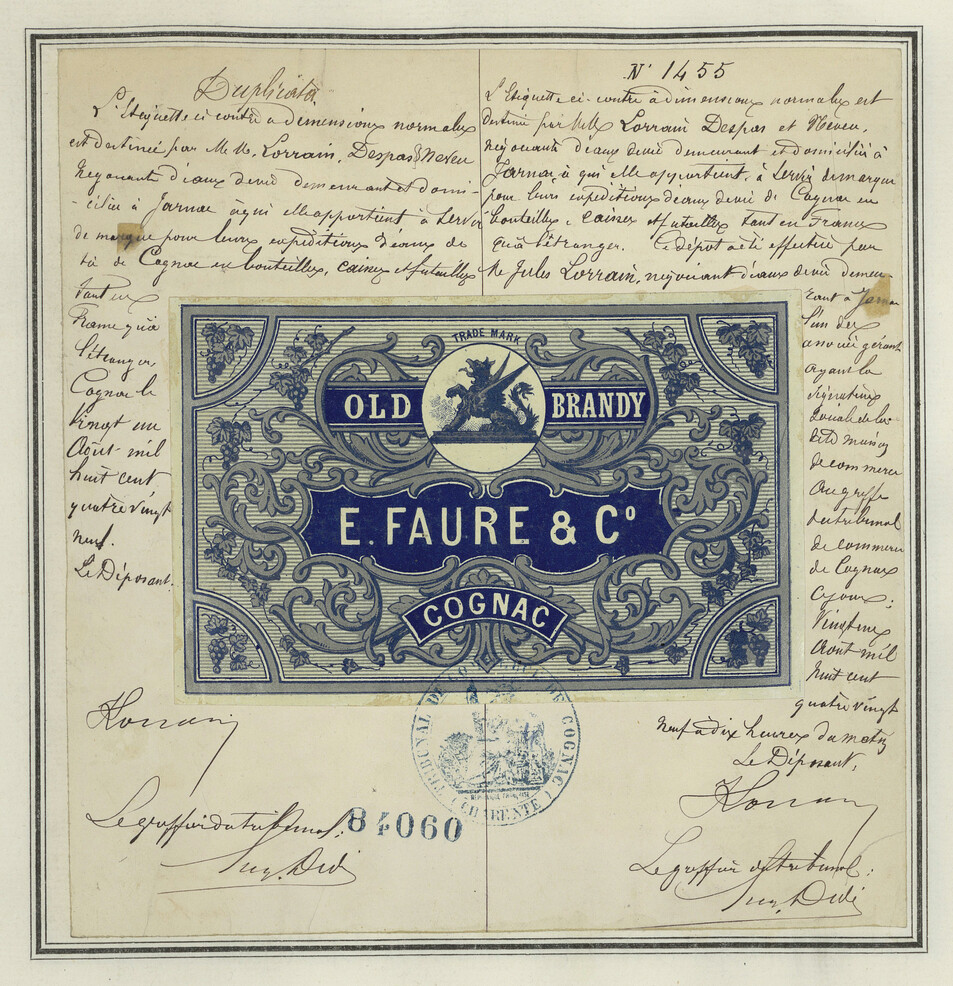 Duplicata.
L'Etiquette ci contre a dimensions normales
est destinée par M.M. Lorrain, Despas & Neveu
Négociants d'eaux devie demeurant et domi-
-ciliés à Jarnac à qui elle appartient à servir
de marque pour leurs expéditions d'eaux de
vie de Cognac en bouteilles, caisses et futailles
tant en
France qu'à
l'étranger,
Cognac le
vingt un
Août mil
huit cent
quatre vingt
neuf.
Le Déposant.
Lorrain
Le greffier du tribunal:
84060
N° 1455
L'Etiquette ci-contre à dimensions normales est
destinée par M.M. Lorrain Despas et Neveu,
négociants d'eaux devie demeurant et domiciliés à
Jarnac à qui elle appartient, à servir de marque
pour leurs expéditions d'eaux devie de Cognac en
bouteilles, caisses et futailles tant en France
qu'à l'étranger. Ce dépôt a été effectué par
M. Jules Lorrain, négociant d'eaux devie demeu-
rant à Jarnac
l'un des
associés gérant
ayant la
signature
sociale de la
dite maison
de commerce
au greffe
du tribunal
de commerce
de Cognac
ce jour:
Vingt un
Août mil
huit cent
quatre vingt
neuf à dix heures du matin
Le Déposant,
Lorrain
Le greffier du tribunal:
TRADE MARK
OLD BRANDY
E. FAURE & Cº
COGNAC
TRIBUNAL DE COMMERCE DE COGNAC
(CHARENTE)